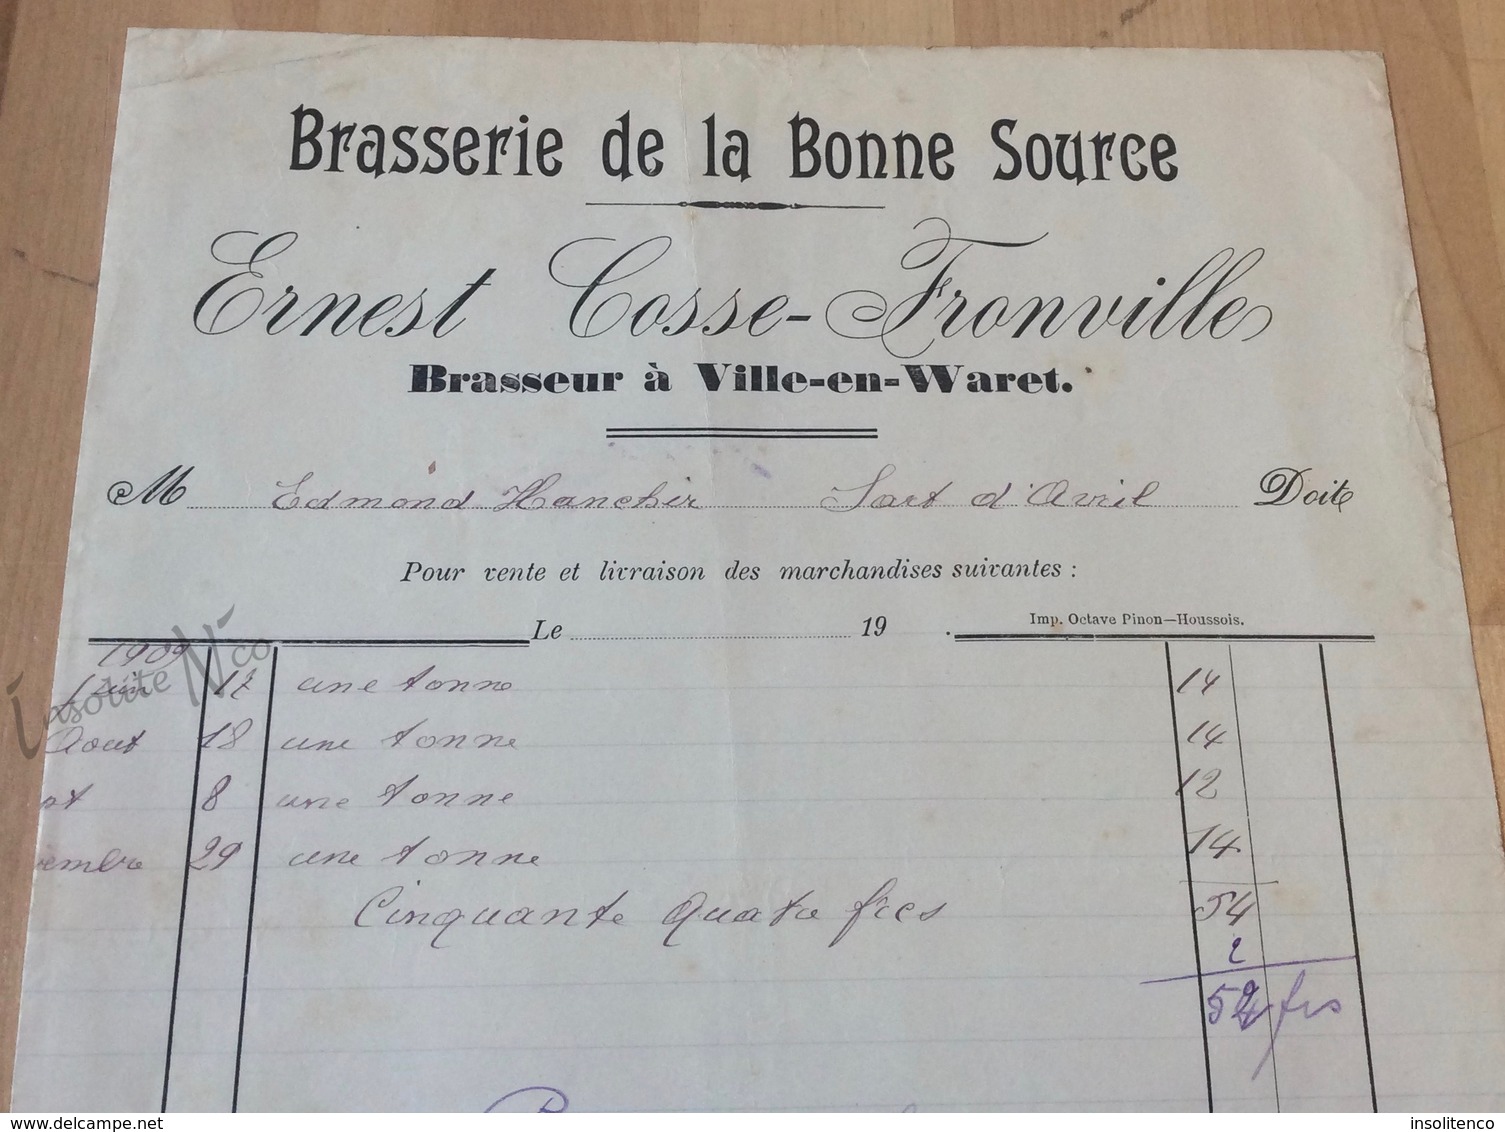 Brasserie de la Bonne Source
Ernest Cosse-Fronville
Brasseur à Ville-en-Waret.
M Edmond Hanchir Sart d'Avril Doit
Pour vente et livraison des marchandises suivantes :
Le 19 .
Imp. Octave Pinon—Houssois.
1909
Juin 17 une tonne 14
Aout 18 une tonne 14
8 une tonne 12
embre 29 une tonne 14
Cinquante quatre frcs 54
2
52 frs
insolite N'co
delcampe.net
insolitenco